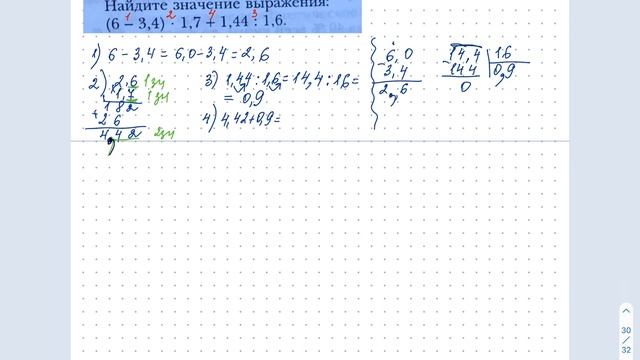 Найдите значение выражения:
1 2 4 3
(6 − 3,4) · 1,7 + 1,44 : 1,6.
1) 6 − 3,4 = 6,0 − 3,4 = 2,6
2) × 2,6 1 зн
1,7 1 зн
1 8 2
+ 2 6
4,4 2 2 зн
3) 1,44 : 1,6 = 14,4 : 16 =
= 0,9
4) 4,42 + 0,9 =
− 6,0
3,4
2,6
− 14,4 16
14 4 0,9
0
30
32